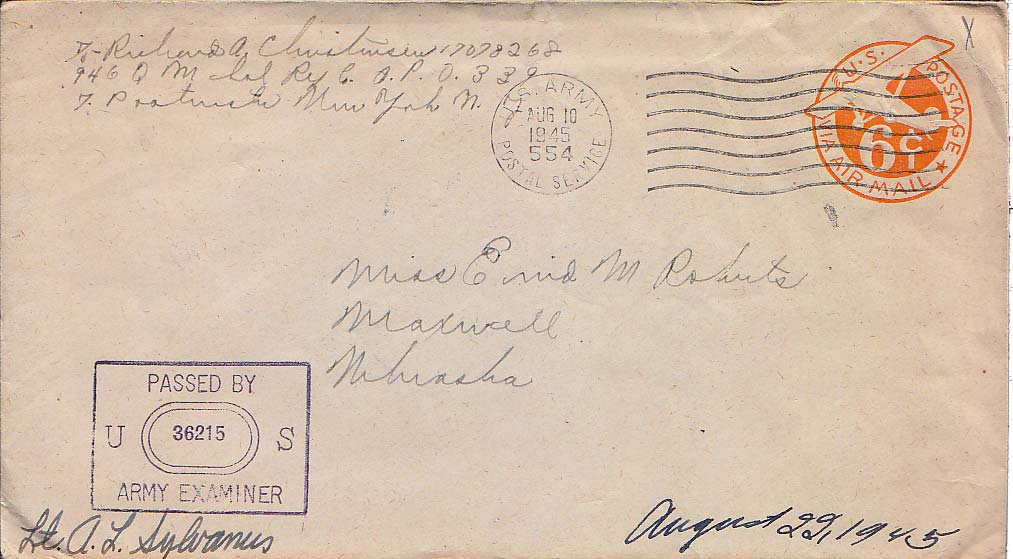 T/5 Richard A. Christensen 17078268
946 Q M Sal Rp C. A. P. O. 339
% Postmaster New York N.
U.S. ARMY
AUG 10
1945
554
POSTAL SERVICE
U.S. POSTAGE
6¢
VIA AIR MAIL
X
Miss Enid M Roberts
Maxwell
Nebraska
PASSED BY
U 36215 S
ARMY EXAMINER
Lt. A. L. Sylvanus
August 22, 1945